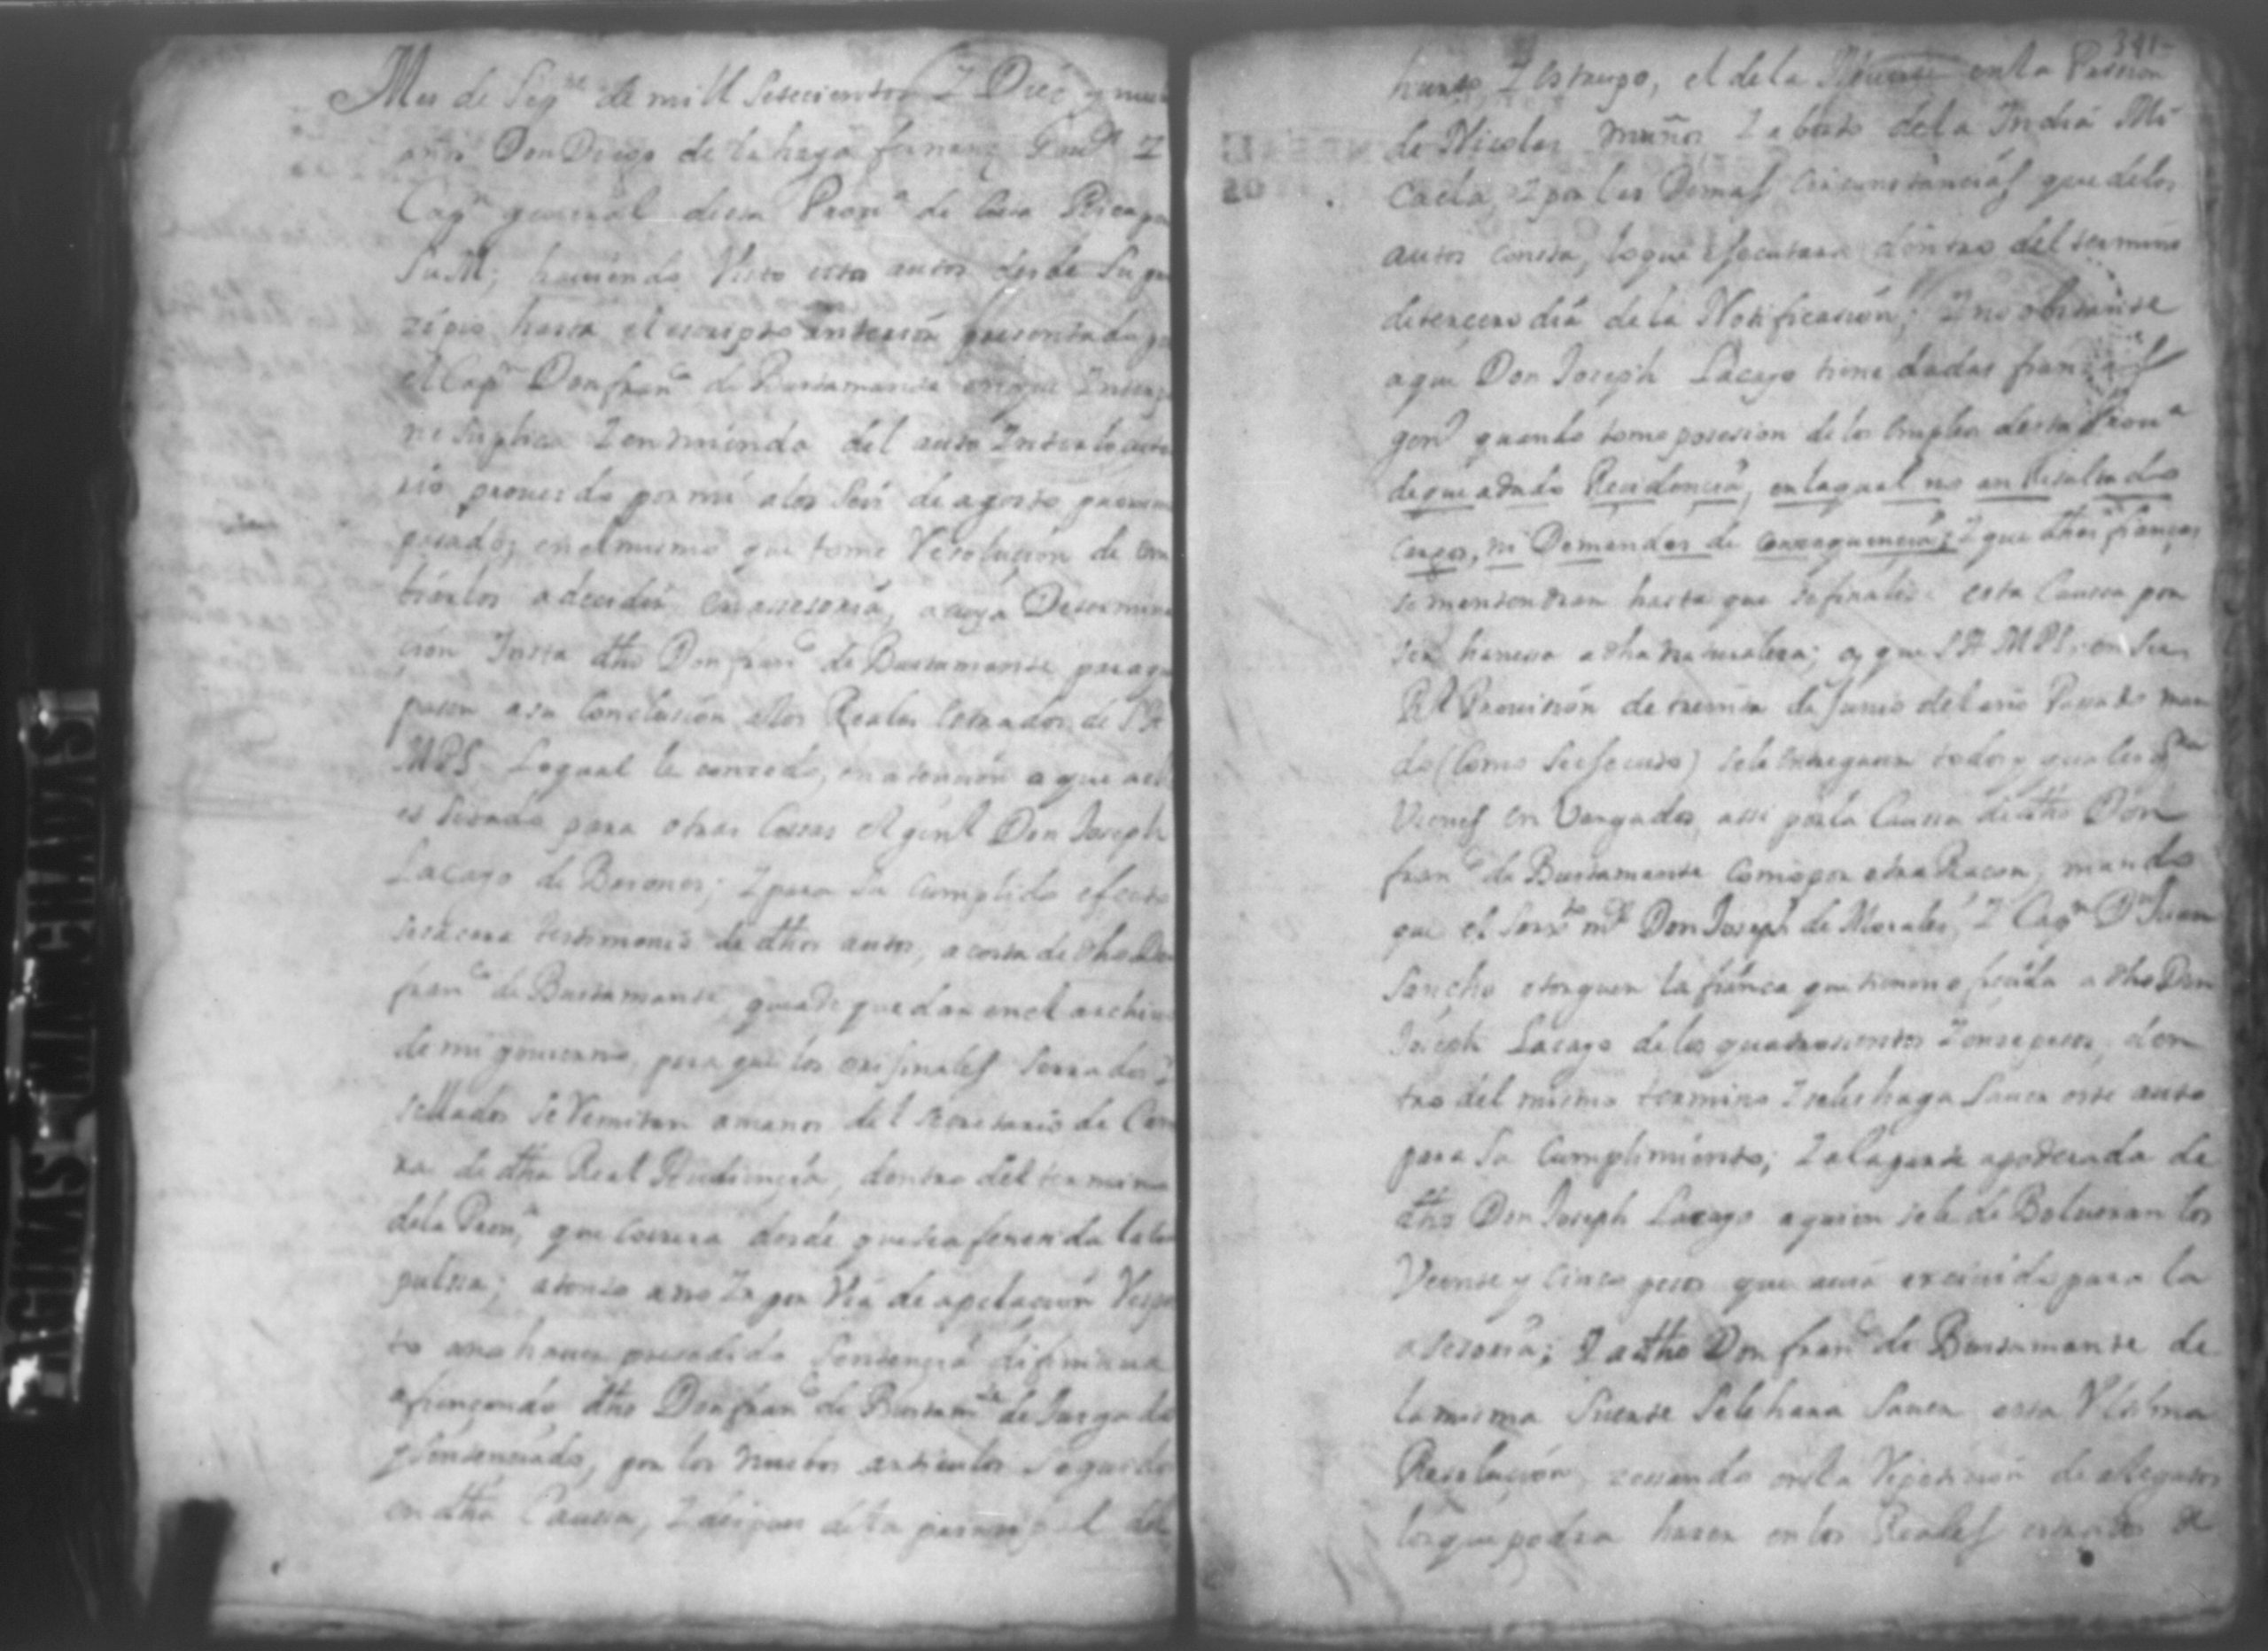 Mes de Sepre de mill Setecientos I Diez y nueve
años Don Diego de la haya fernanz Govr I
Capn general desta Prova de Costa Rica por
Su M; haviendo Visto estos autos desde Su prin
zipio hasta el escripto anterior presentado por
el Capn Don franco de Bustamante en que Interpo
ne Suplica I enmienda del auto Interlocuto
rio proveido por mi a los Seis de agosto proximo
pasado; en el mismo que tome Resolucion de
a decidir en assesoria, a cuya Determina
cion Insta dho Don franco de Bustamante para que
pasen a su Conclusion a los Reales Estrados de SA
MPS Lo qual le concedo, en atencion a que
es para otras Cossas el genl Don Joseph
Lacayo de Briones; I para Su Cumplido efecto
Se sacara testimonio de dhos autos, a costa de dho Don
franco de Bustamante, que a de quedar en el archivo
de mi govierno, para que los orijinales Serrados I
Sellados Se Remitan a manos del Secretario de Cama
ra de dha Real Audiencia, dentro del termino
de la Prova, que Correra desde que sea fenecida la com
pulssa; atento a no Ir por Via de apelacion Respec
to a no haver presedido Sentencia difinitiva
afianzando dho Don franco de Bustamte de Jusgado
y Sentenciado, por los nuebos articulos Seguidos
en dha Caussa, I despues de la prinzipal del
341
hurto I estrupo, el de la Muerte en la Persona
de Nicolas Muños I aborto de la India Mi
caela, I por las Demas Circunstancias que de los
autos consta, lo que efecutara dentro del termino
de tercero dia de la Notificacion; I no obstante
a que Don Joseph Lacayo tiene dadas fianzas
genl quando tomo posesion de los Empleos desta Prova
de que a dado Recidencia, en la qual no an Resultado
cargos, ni Demandas de consequencia; I que dhas fianças
se mantendran hasta que se finalise esta Caussa por
ser hanessa a dha naturaleza; o que SA MPS, en Su
Rl Provision de treinta de Junio del año Passado man
do (Como Se efecuto) Se le entregaran todos y qualesqra
Vienes en Vargados, assi por la Caussa de dho Don
franco de Bustamante Como por otra Racon, mando
que el Sarxto mr Don Joseph de Morales, I Capn Dn Juan
Sancho otorguen la fianca que tienen ofrecida a dho Don
Joseph Lacayo de los quatrocientos I onse pesos, den
tro del mismo termino I seles haga Saver este auto
para Su Cumplimiento; I a la parte apoderada de
dho Don Joseph Lacayo a quien se le de Bolveran los
Veinte y Cinco pesos que avia excivido para la
asesoria; I a dho Don franco de Bustamante de
la misma Suerte Se le hara Saver esta Vltima
Resolucion, cessando en la Repeticion de alegatos
los que podra hazer en los Reales estrados de